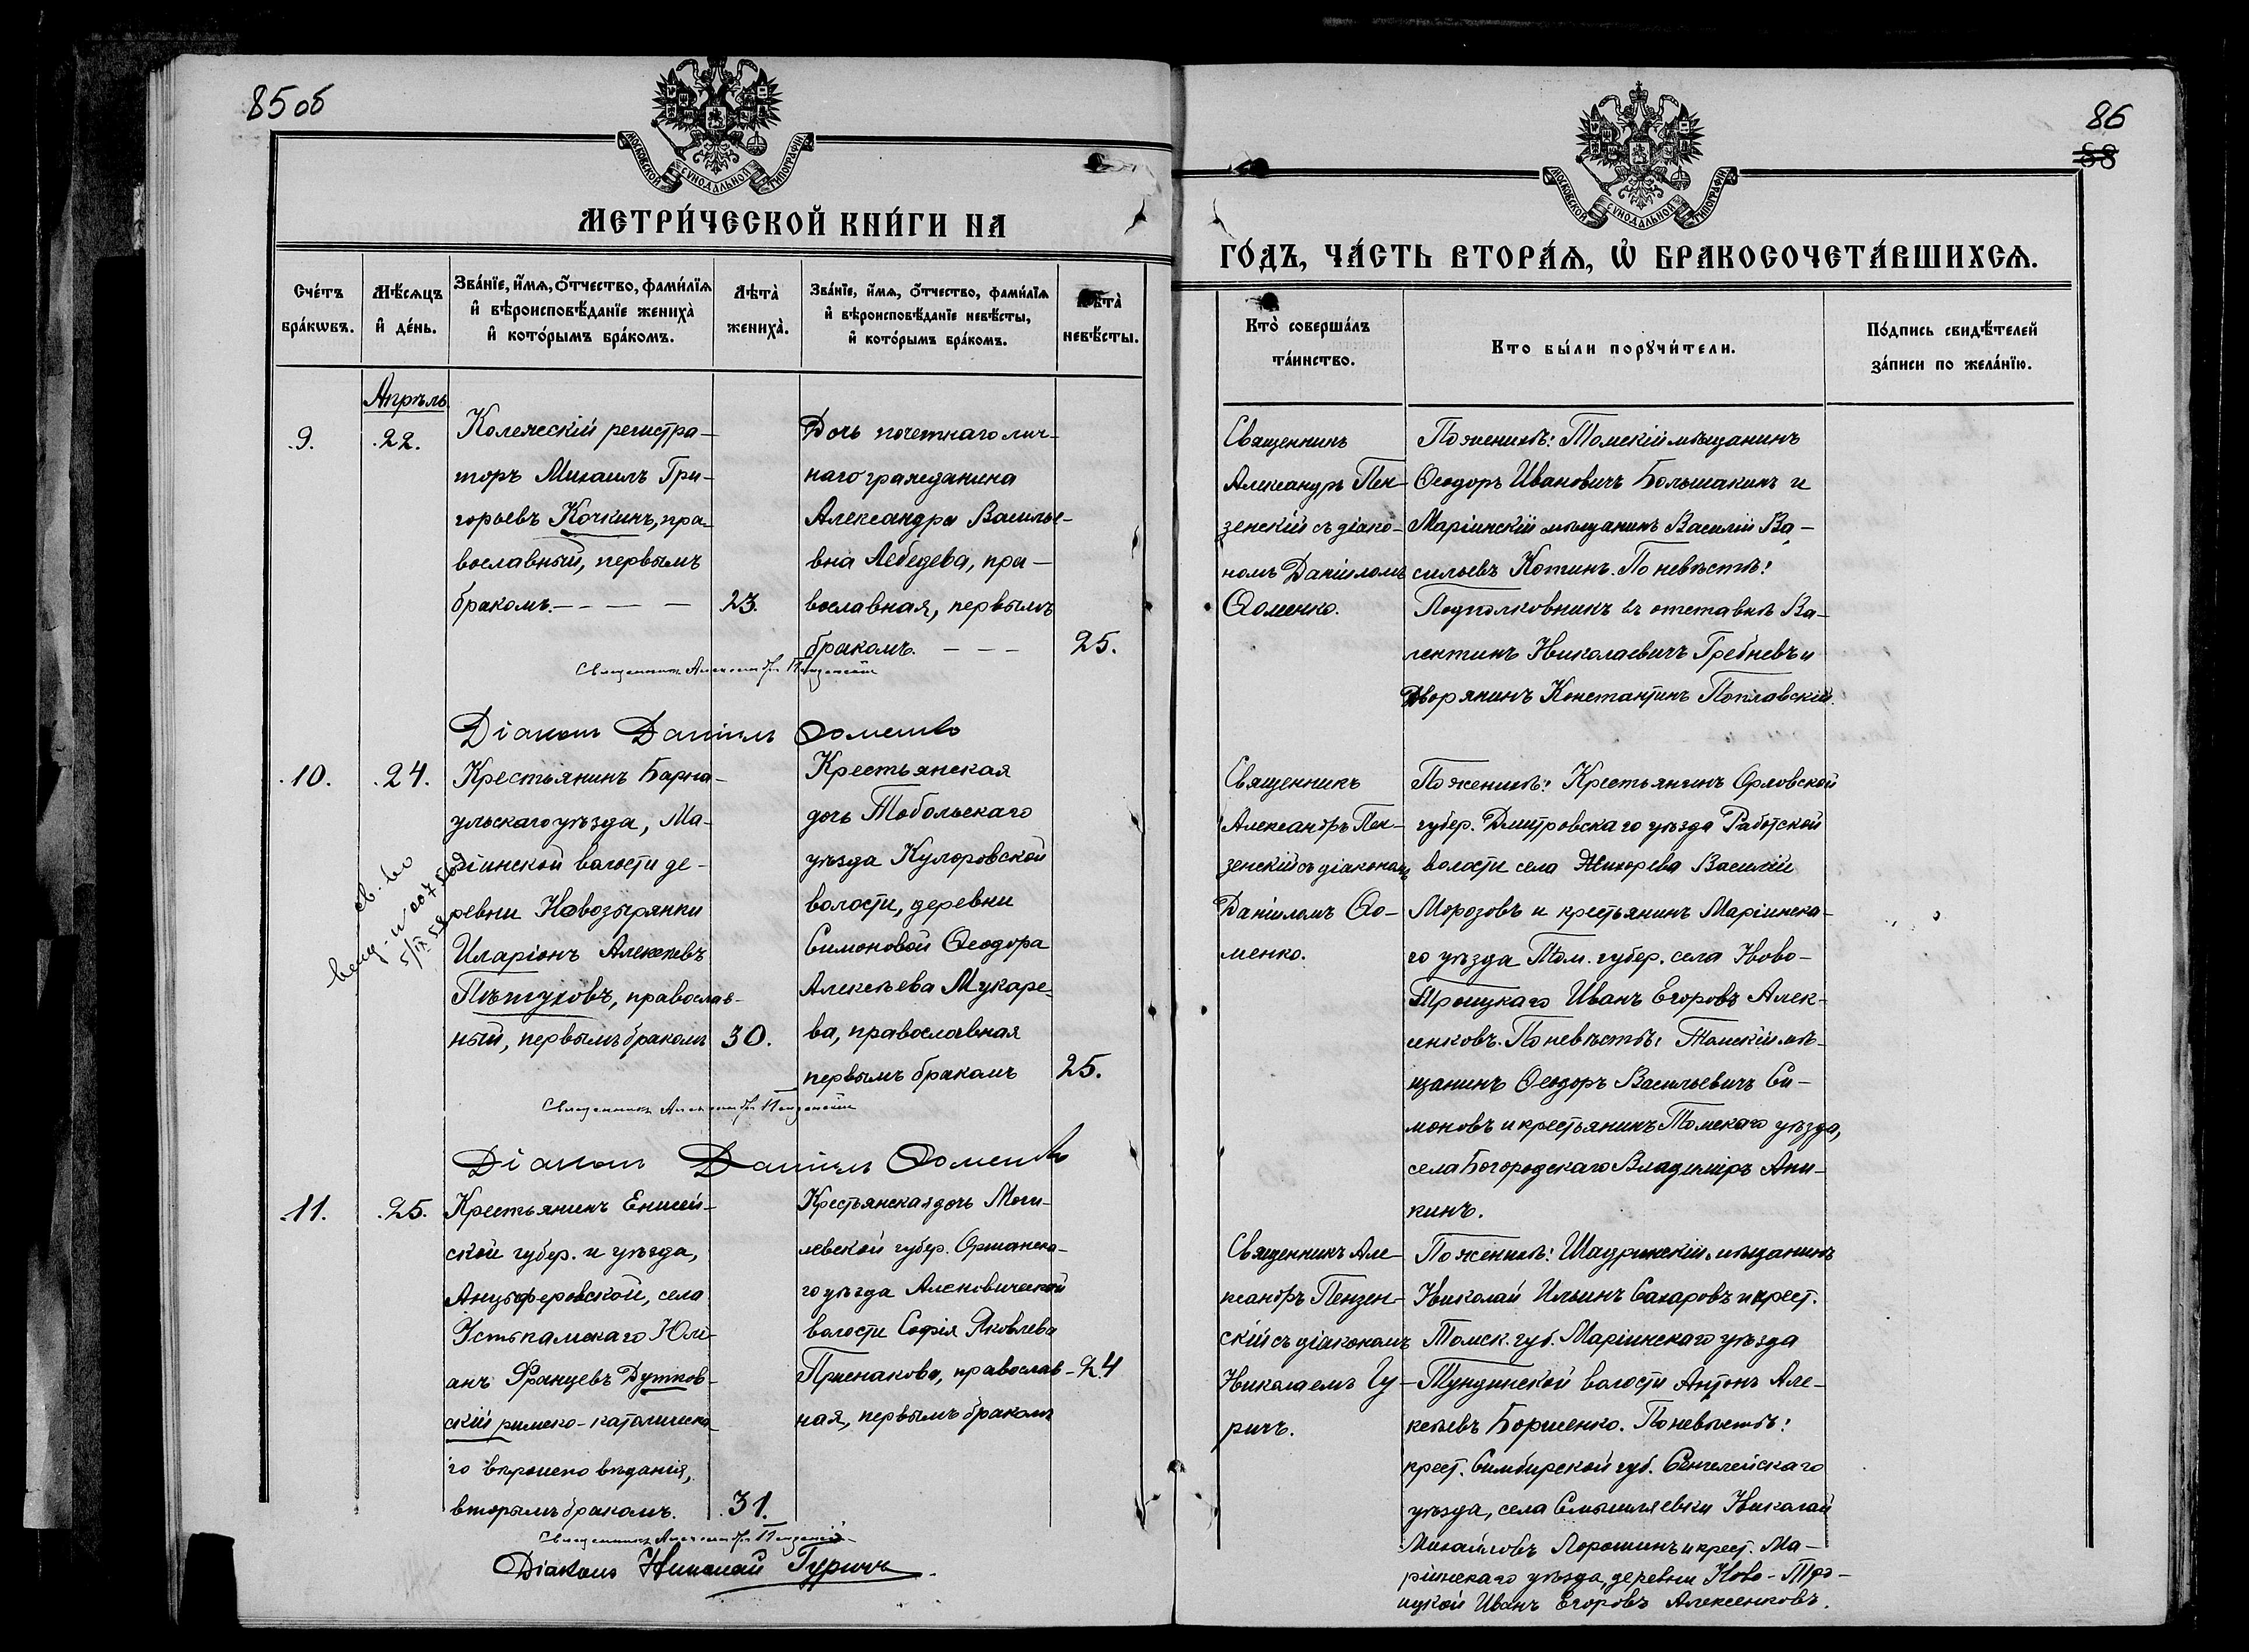 85 об
МОСКОВСКОЙ СѴНОДАЛЬНОЙ ТИПОГРАФІИ
МЕТРИ́ЧЕСКОЙ КНИ́ГИ НА
Сче́тъ бра́кѡвъ.
Мѣ́сѧцъ и҆ де́нь.
Зва́нїе, и҆́мѧ, ѻ҆́тчество, фами́лїѧ и҆ вѣроисповѣ́данїе жениха̀ и҆ кото́рымъ бра́комъ.
Лѣта̀ жениха̀.
Зва́нїе, и҆́мѧ, ѻ҆́тчество, фами́лїѧ и҆ вѣроисповѣ́данїе невѣ́сты, и҆ кото́рымъ бра́комъ.
Лѣта̀ невѣ́сты.
Апрѣль
9.
22.
Колежскій регистра-
торъ Михаилъ Гри-
горьевъ Кочкинъ, пра-
вославный, первымъ
бракомъ.
23.
Дочь почетнаго лич-
наго гражданина
Александра Василье-
вна Лебедева, пра-
вославная, первымъ
бракомъ.
25.
Священникъ Александръ Пензенскій
Діаконъ Даніилъ Ѳоменко
10.
24.
Крестьянинъ Барна-
ульскаго уѣзда, Ма-
ріинской волости де-
ревни Новозырянки
Иларіонъ Алексѣевъ
Пѣтуховъ, православ-
ный, первымъ бракомъ
30.
св-во
5/IX 58
Крестьянская
дочь Тобольскаго
уѣзда Куларовской
волости, деревни
Симоновой Ѳеодора
Алексѣева Мукаре-
ва, православная
первымъ бракомъ
25.
Священникъ Александръ Пензенскій
Діаконъ Даніилъ Ѳоменко
11.
25.
Крестьянинъ Енисей-
ской губер. и уѣзда,
Анцыферовской, села
Устьпамскаго Юлі-
анъ Францевъ Дутков-
скій римско-католическа-
го вѣроисповѣданія,
вторымъ бракомъ.
31.
Крестьянская дочь Моги-
левской губер. Оршанска-
го уѣзда Алексовической
волости Софія Яковлева
Приснакова, православ-
ная, первымъ бракомъ
24
Священникъ Александръ Пензенскій
Діаконъ Николай Гуричъ
86
58
МОСКОВСКОЙ СѴНОДАЛЬНОЙ ТИПОГРАФІИ
ГО́ДЪ, ЧА́СТЬ ВТОРА́Ѧ, Ѽ БРАКОСОЧЕТА́ВШИХСѦ.
Кто̀ соверша́лъ та́инство.
Кто бы́ли порꙋчи́тели.
По́дпись свидѣ́телей за́писи по жела́нїю.
Священникъ
Александръ Пен-
зенскій съ діако-
номъ Даніиломъ
Ѳоменко.
По женихѣ: Томскій мѣщанинъ
Ѳеодоръ Ивановичъ Большакинъ и
Маріинскій мѣщанинъ Василій Ва-
сильевъ Котинъ. По невѣстѣ:
Подполковникъ въ отставкѣ Ва-
лентинъ Николаевичъ Гребневъ и
Дворянинъ Константинъ Поплавскій.
Священникъ
Александръ Пен-
зенскій съ діакономъ
Даніиломъ Ѳо-
менко.
По женихѣ: Крестьянинъ Орловской
губер. Дмитровскаго уѣзда Работской
волости села Жихорева Василій
Морозовъ и крестьянинъ Маріинска-
го уѣзда Том. губер. села Ново-
Троицкаго Иванъ Егоровъ Алек-
сенковъ. По невѣстѣ: Томскій мѣ-
щанинъ Ѳеодоръ Васильевичъ Си-
моновъ и крестьянинъ Томскаго уѣзда,
села Богородскаго Владиміръ Ани-
кинъ.
Священникъ Але-
ксандръ Пензен-
скій съ діакономъ
Николаемъ Гу-
ричъ.
По женихѣ: Шадринскій мѣщанинъ
Николай Ильинъ Сахаровъ и крест.
Томск. губ. Маріинскаго уѣзда
Тундинской волости Антонъ Але-
ксѣевъ Борисенко. По невѣстѣ:
крест. Симбирской губ. Сенгелейскаго
уѣзда, села Смышляевки Николай
Михайловъ Лорошинъ и крест. Ма-
ріинскаго уѣзда, деревни Ново-Тро-
ицкой Иванъ Егоровъ Алексенковъ.